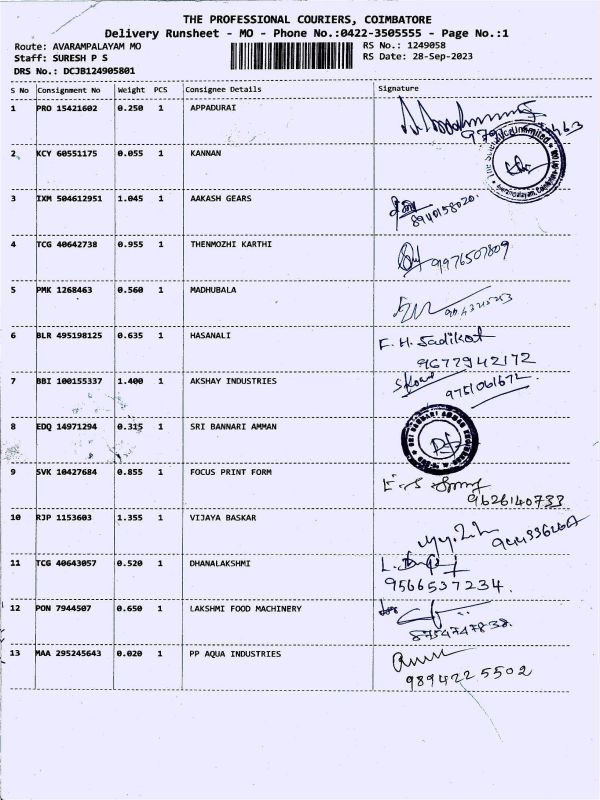 THE PROFESSIONAL COURIERS, COIMBATORE
Delivery Runsheet - MO - Phone No.:0422-3505555 - Page No.:1
Route: AVARAMPALAYAM MO
RS No.: 1249058
Staff: SURESH P S
RS Date: 28-Sep-2023
DRS No.: DCJB124905801
S No Consignment No Weight PCS Consignee Details Signature
1 PRO 15421602 0.250 1 APPADURAI
2 KCY 60551175 0.055 1 KANNAN
3 IXM 504612951 1.045 1 AAKASH GEARS
8940158020
4 TCG 40642738 0.955 1 THENMOZHI KARTHI
9976507809
5 PMK 1268463 0.560 1 MADHUBALA
6 BLR 495198125 0.635 1 HASANALI F. H. Sadikat
9677942172
7 BBI 100155337 1.400 1 AKSHAY INDUSTRIES
9751061672
8 EDQ 14971294 0.315 1 SRI BANNARI AMMAN
SRI BANNARI AMMAN
9 SVK 10427684 0.855 1 FOCUS PRINT FORM
9626140733
10 RJP 1153603 1.355 1 VIJAYA BASKAR
11 TCG 40643057 0.520 1 DHANALAKSHMI
9566537234.
12 PON 7944507 0.650 1 LAKSHMI FOOD MACHINERY
8754747838
13 MAA 295245643 0.020 1 PP AQUA INDUSTRIES
9894225502